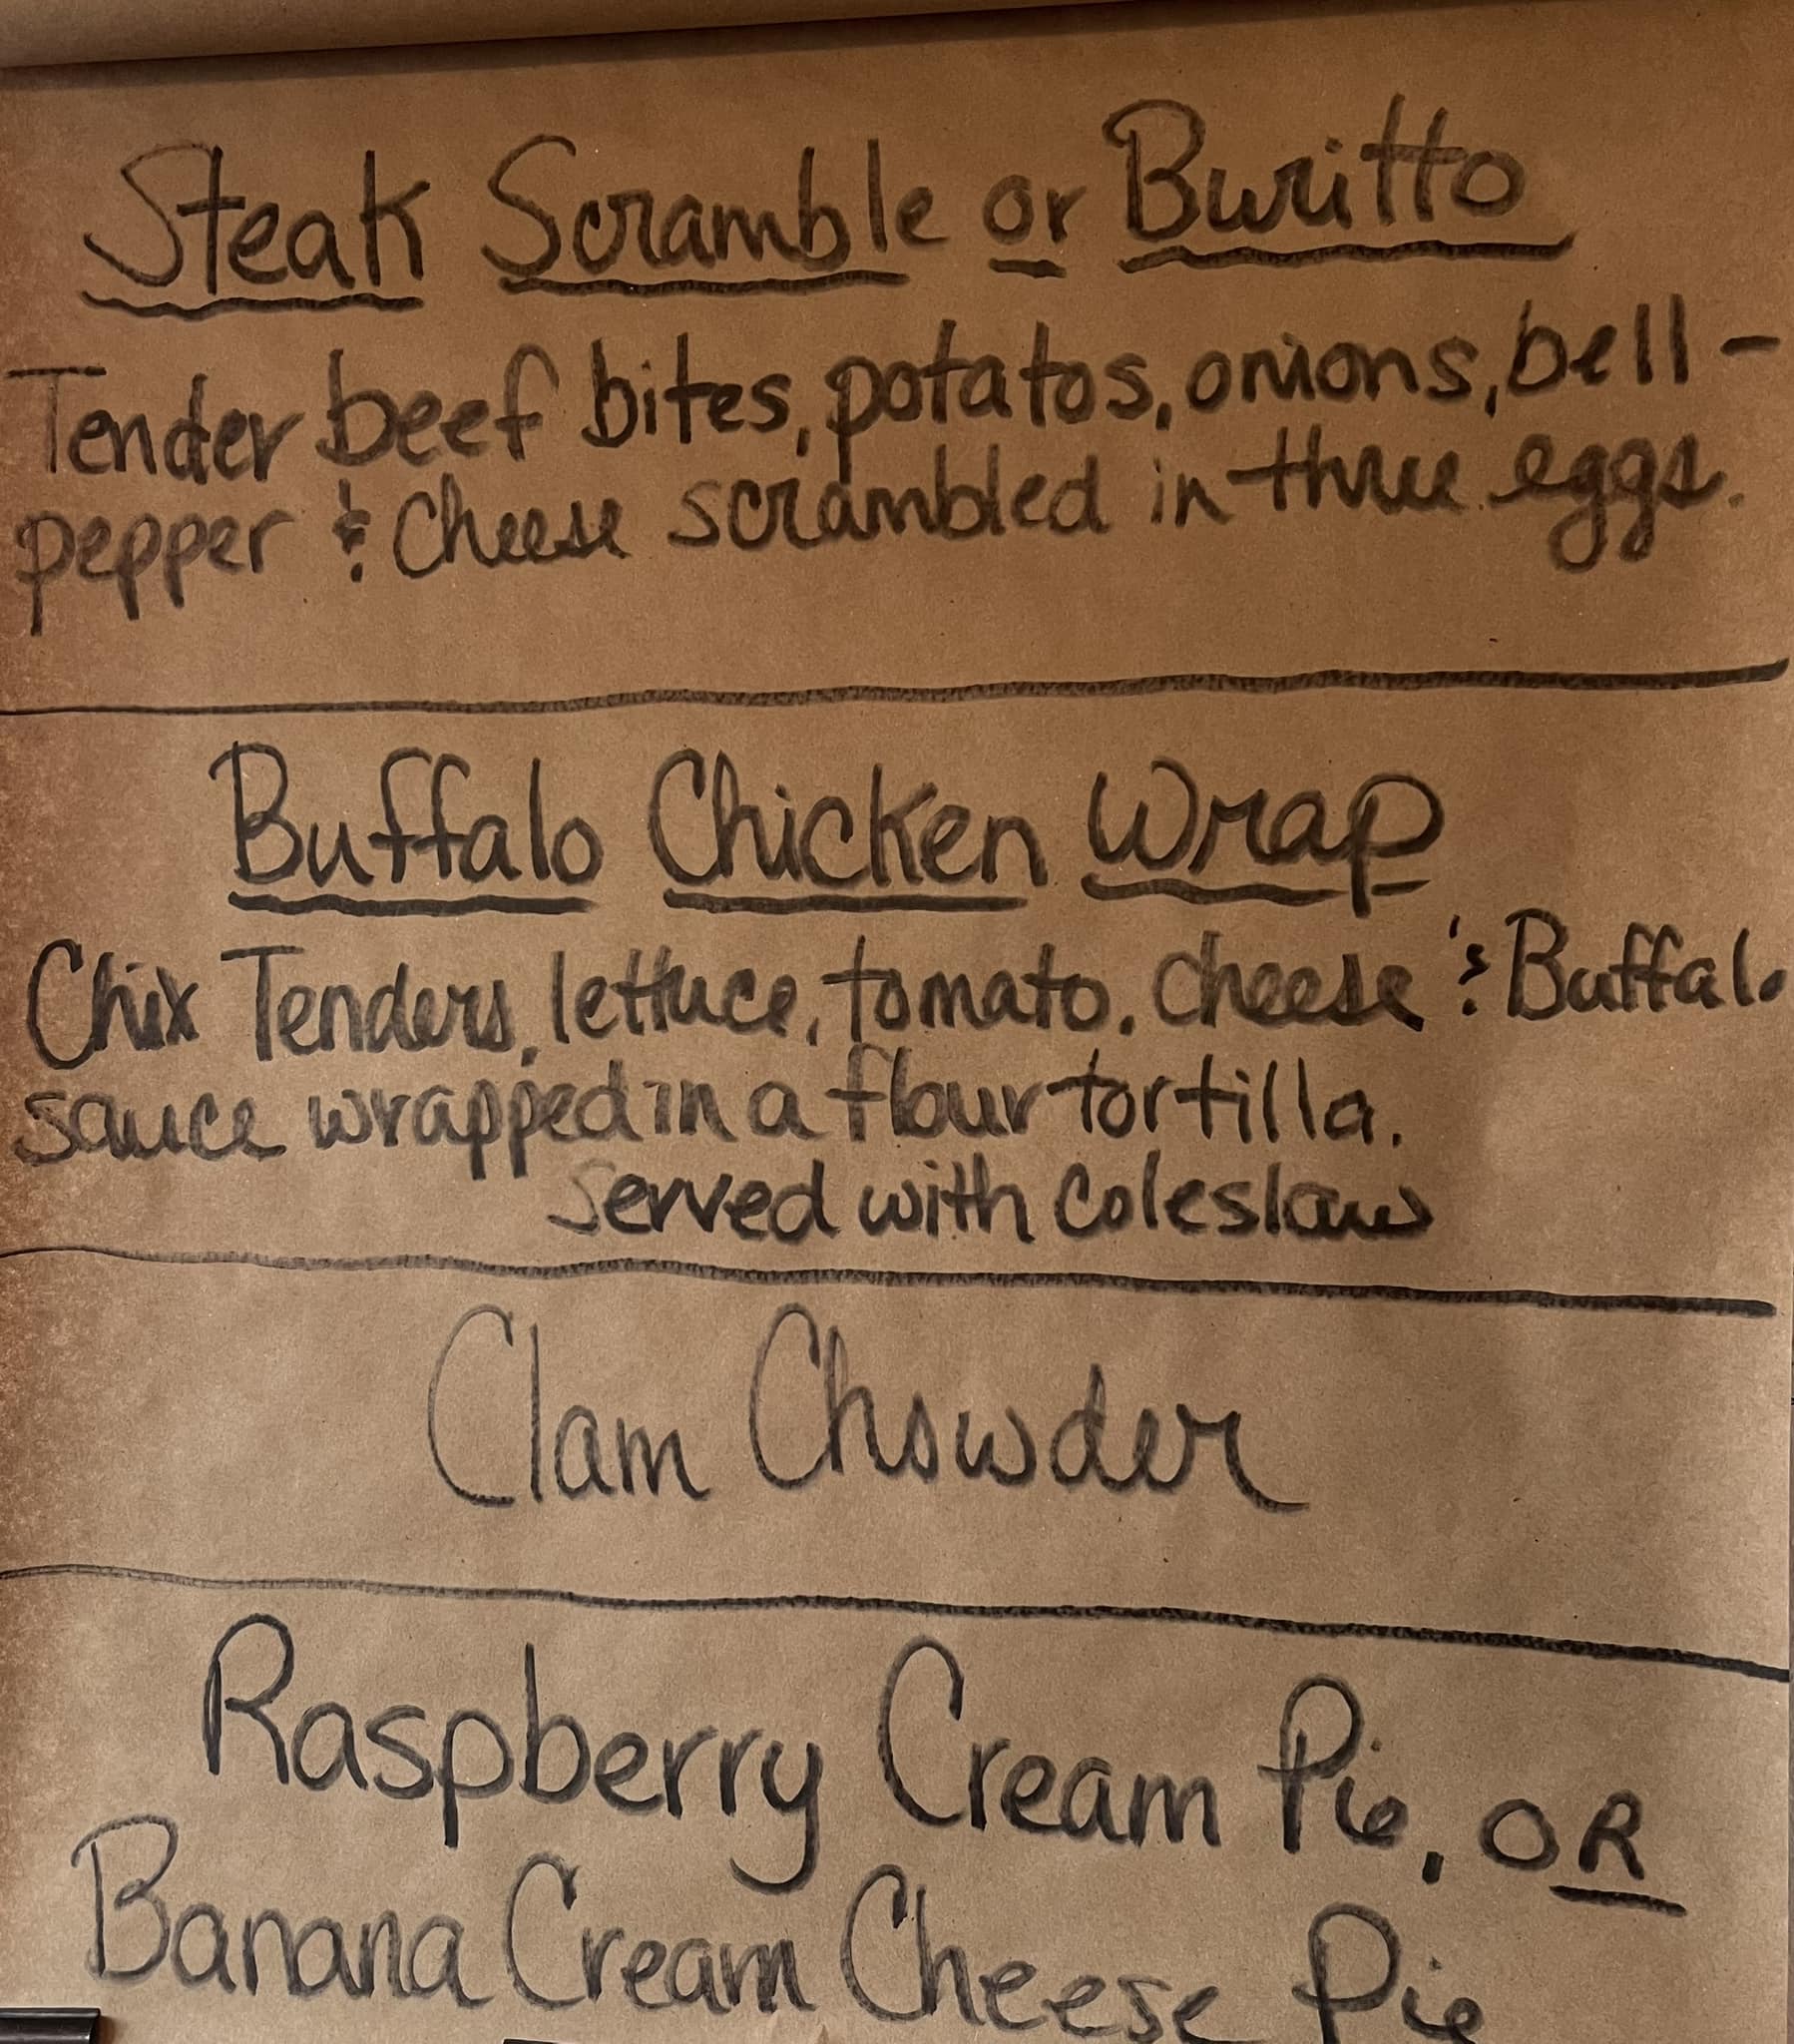 Steak Scramble or Burritto
Tender beef bites, potatos, onions, bell-
pepper & Cheese scrambled in three eggs.
Buffalo Chicken Wrap
Chix Tenders, lettuce, tomato, cheese & Buffalo
sauce wrapped in a flour tortilla.
Served with Coleslaw
Clam Chowder
Raspberry Cream Pie, OR
Banana Cream Cheese Pie